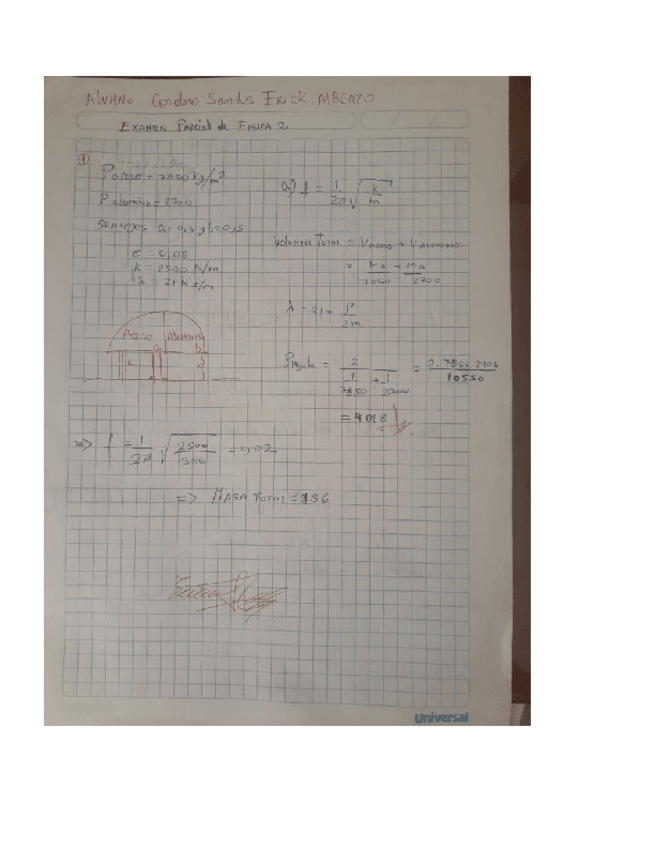 ALUMNO: Condoro Santos ERICK ALBERTO
EXAMEN PARCIAL de FISICA 2
1
ρ acero = 7850 kg/m³
ρ aluminio = 2700
Semiejes a = 0,4 y b = 0,5
e = 0,08
k = 2500 N/m
= 21 N s/m
Acero Aluminio
a b
K K
a) f = 1/2π √k/m
Volumen Total = V acero + V aluminio
= ma/7850 + ma/2700
λ = 21 = P/2m
= 2/(1/7850 + 1/2700) = 2.7850.2700/10550
= 4018
=> f = 1/2π √2500/ = 0,02
=> MASA TOTAL = 136
Universal